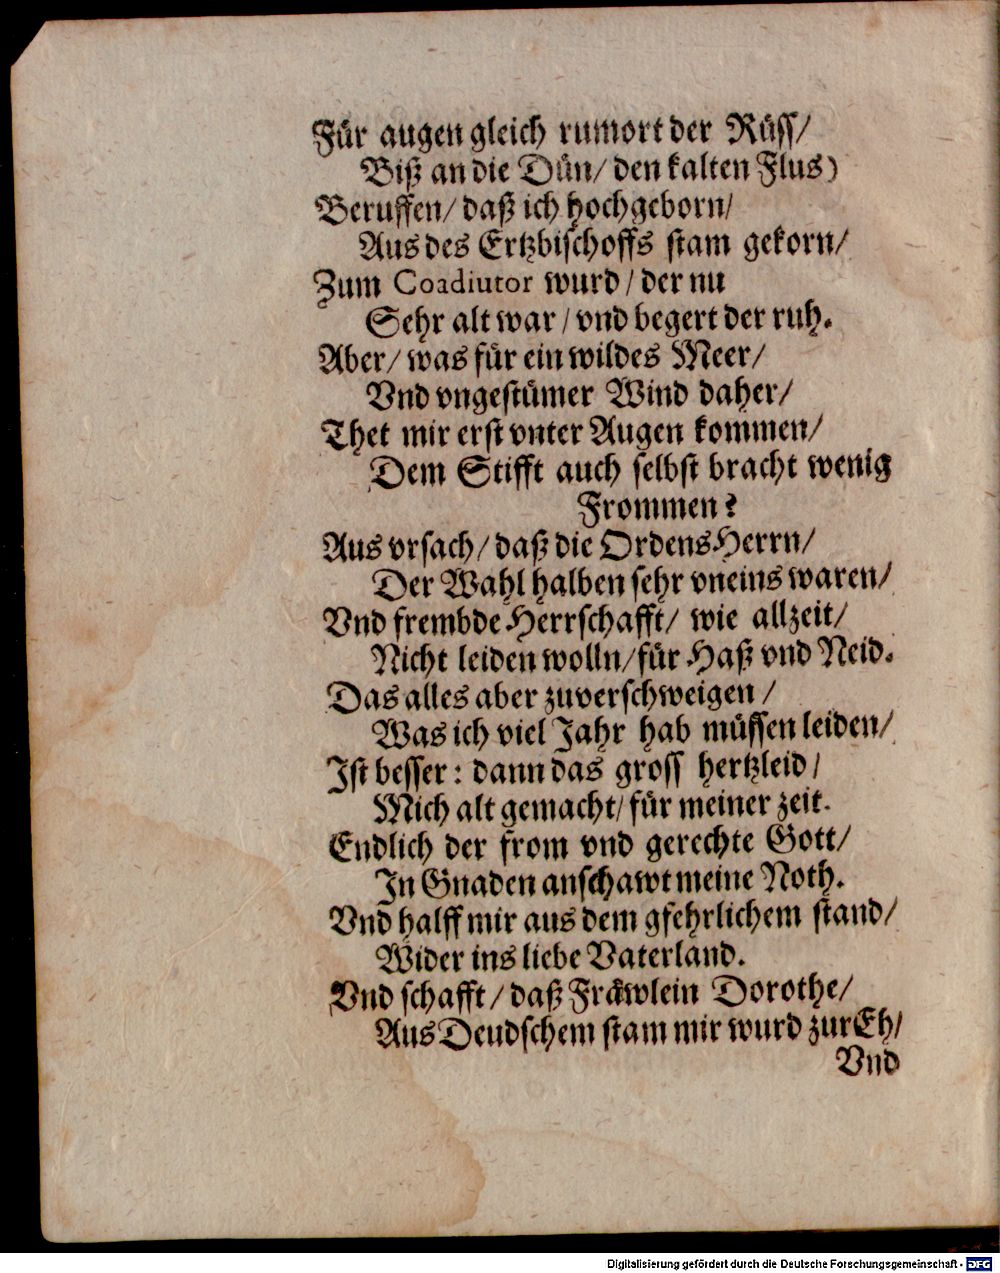 Für augen gleich rumort der Rüss/
Biß an die Dün/ den kalten Flus)
Beruffen/ daß ich hochgeborn/
Aus des Ertzbischoffs stam gekorn/
Zum Coadiutor wurd/ der nu
Sehr alt war/ vnd begert der ruh.
Aber/ was für ein wildes Meer/
Vnd vngestümer Wind daher/
Thet mir erst vnter Augen kommen/
Dem Stifft auch selbst bracht wenig
Frommen?
Aus vrsach/ daß die OrdensHerrn/
Der Wahl halben sehr vneins waren/
Vnd frembde Herrschafft/ wie allzeit/
Nicht leiden wolln/ für Haß vnd Neid.
Das alles aber zuverschweigen/
Was ich viel Jahr hab müssen leiden/
Ist besser: dann das gross hertzleid/
Mich alt gemacht/ für meiner zeit.
Endlich der from vnd gerechte Gott/
In Gnaden anschawt meine Noth.
Vnd halff mir aus dem gfehrlichem stand/
Wider ins liebe Vaterland.
Vnd schafft/ daß Fräwlein Dorothe/
Aus Deudschem stam mir wurd zur Eh/
Vnd
Digitalisierung gefördert durch die Deutsche Forschungsgemeinschaft - DFG